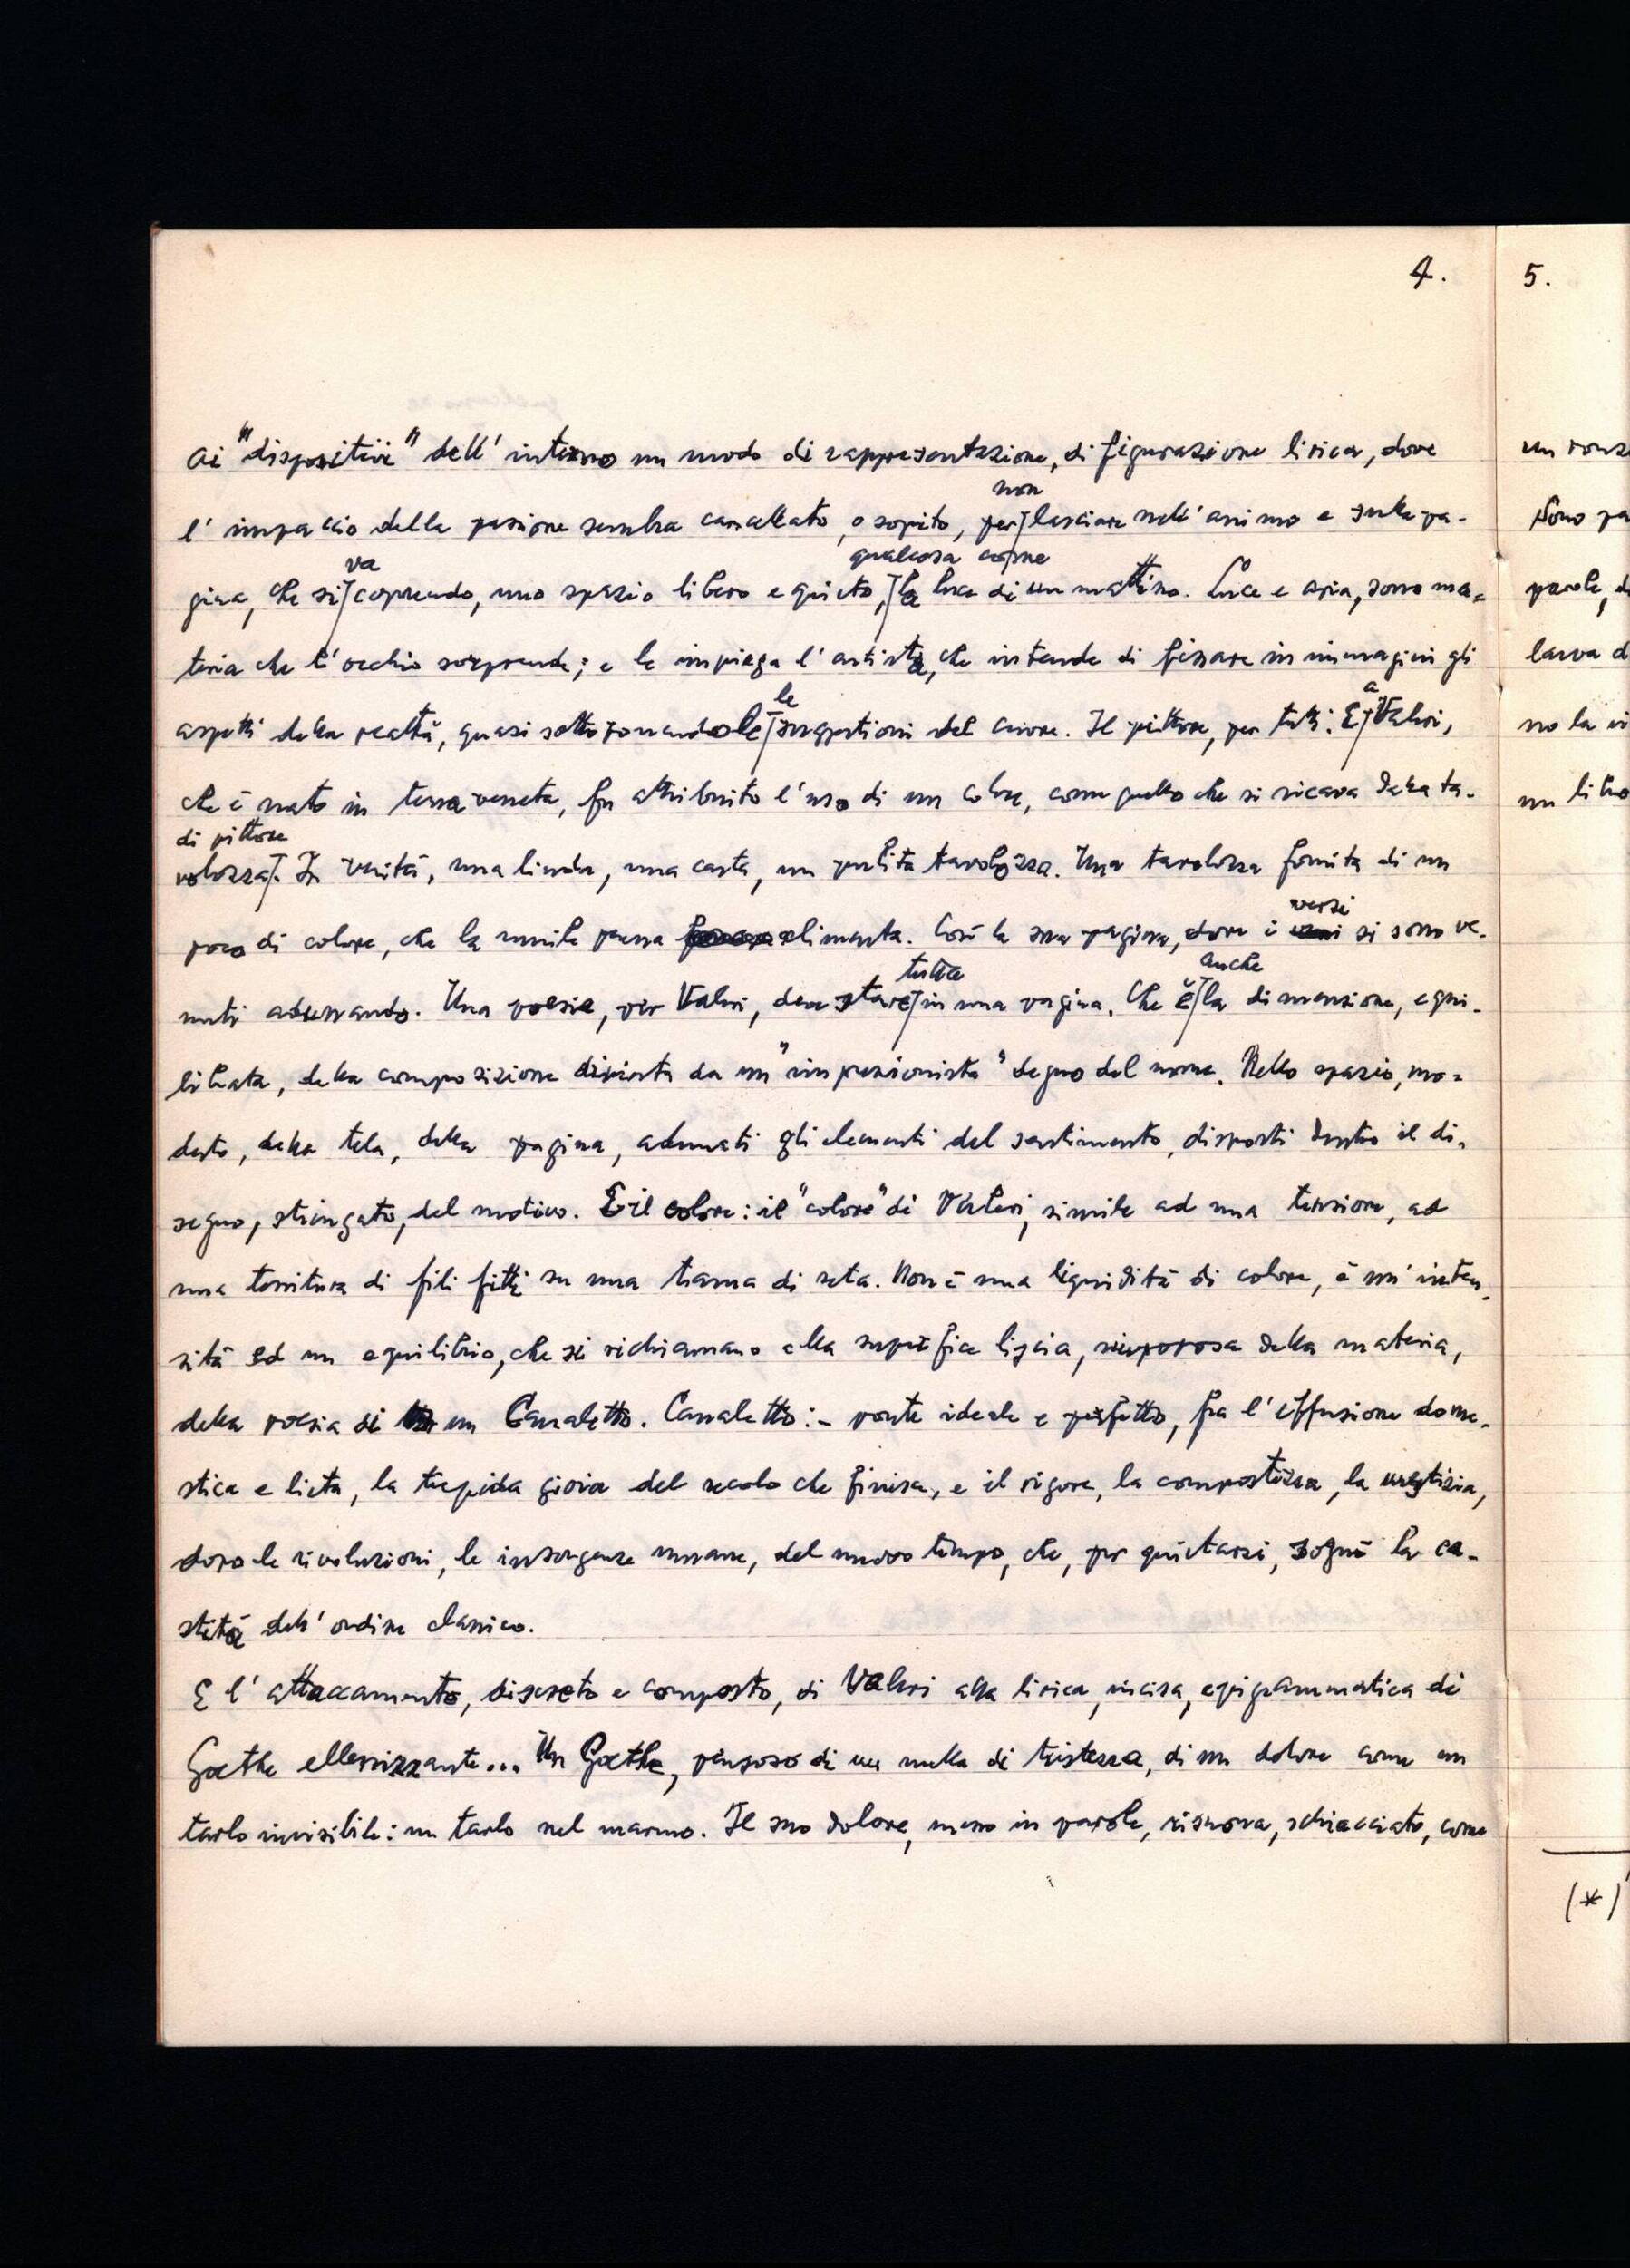 4.
ai "dispositivi" dell'interno un modo di rappresentazione, di figurazione lirica, dove
non
l'impaccio della passione sembra cancellato, o sopito, per lasciare nell'animo e sulla pa-
va qualcosa come
gina, che si coprendo, uno spazio libero e quieto, la luce di un mattino. Luce e aria, sono ma-
teria che l'occhio sorprende; e le impiega l'artista, che intende di fissare in immagini gli
le a
aspetti della realtà, quasi sottozonandole suggestioni del cuore. Il pittore, per tutti. E Valeri,
che è nato in terra veneta, fu attribuito l'uso di un colore, come quello che si ricava dalla ta-
di pittore
volozza. In verità, una linda, una casta, un pulita tavolozza. Una tavolozza fornita di un
versi
poco di colore, che la umile penna alimenta. Così la sua pagina, dove i si sono ve-
tutta anche
nuti adunando. Una poesia, per Valeri, deve stare in una pagina. Che è la dimensione, equi-
librata, della composizione dipinta da un "impressionista" degno del nome. Nello spazio, mo-
desto, della tela, della pagina, adunati gli elementi del sentimento, disposti dentro il di-
segno, stringato, del motivo. E il colore: il "colore" di Valeri, simile ad una tensione, ad
una tessitura di fili fitti su una trama di seta. Non è una liquidità di colore, è un'inten-
sità ed un equilibrio, che si richiamano alla superficie liscia, nivporosa della materia,
della poesia di un Canaletto. Canaletto: - ponte ideale e perfetto, fra l'effusione dome-
stica e lieta, la trepida gioia del secolo che finisce, e il rigore, la compostezza, la mestizia,
dopo le rivoluzioni, le insorgenze umane, del nuovo tempo, che, per quietarsi, sognò la ca-
stità dell'ordine classico.
E l'attaccamento, discreto e composto, di Valeri alla lirica, incisa, epigrammatica di
Goethe ellenizzante... Un Goethe, pensoso di un nulla di tristezza, di un dolore come un
tarlo invisibile: un tarlo nel marmo. Il suo dolore, messo in parole, risuona, schiacciato, come
5.
un ronz
Sono pa
parole, d
larva d
no la vi
un libro
(*)